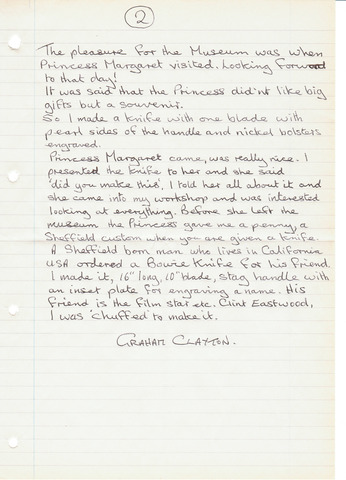 2
The pleasure for the Museum was when
Princess Margaret visited. Looking forward
to that day!
It was said that the Princess did'nt like big
gifts but a souvenir.
So I made a knife with one blade with
pearl sides of the handle and nickel bolsters
engraved.
Princess Margaret came, was really nice. I
presented the knife to her and she said
'did you make this', I told her all about it and
she came into my workshop and was interested
looking at everything. Before she left the
museum the Princess gave me a penny, a
Sheffield custom when you are given a knife.
A Sheffield born man who lives in California
USA ordered a Bowie Knife for his friend
I made it, 16" long, 10" blade, stag handle with
an inset plate for engraving a name. His
friend is the film star etc. Clint Eastwood,
I was 'chuffed' to make it.
GRAHAM CLAYTON.